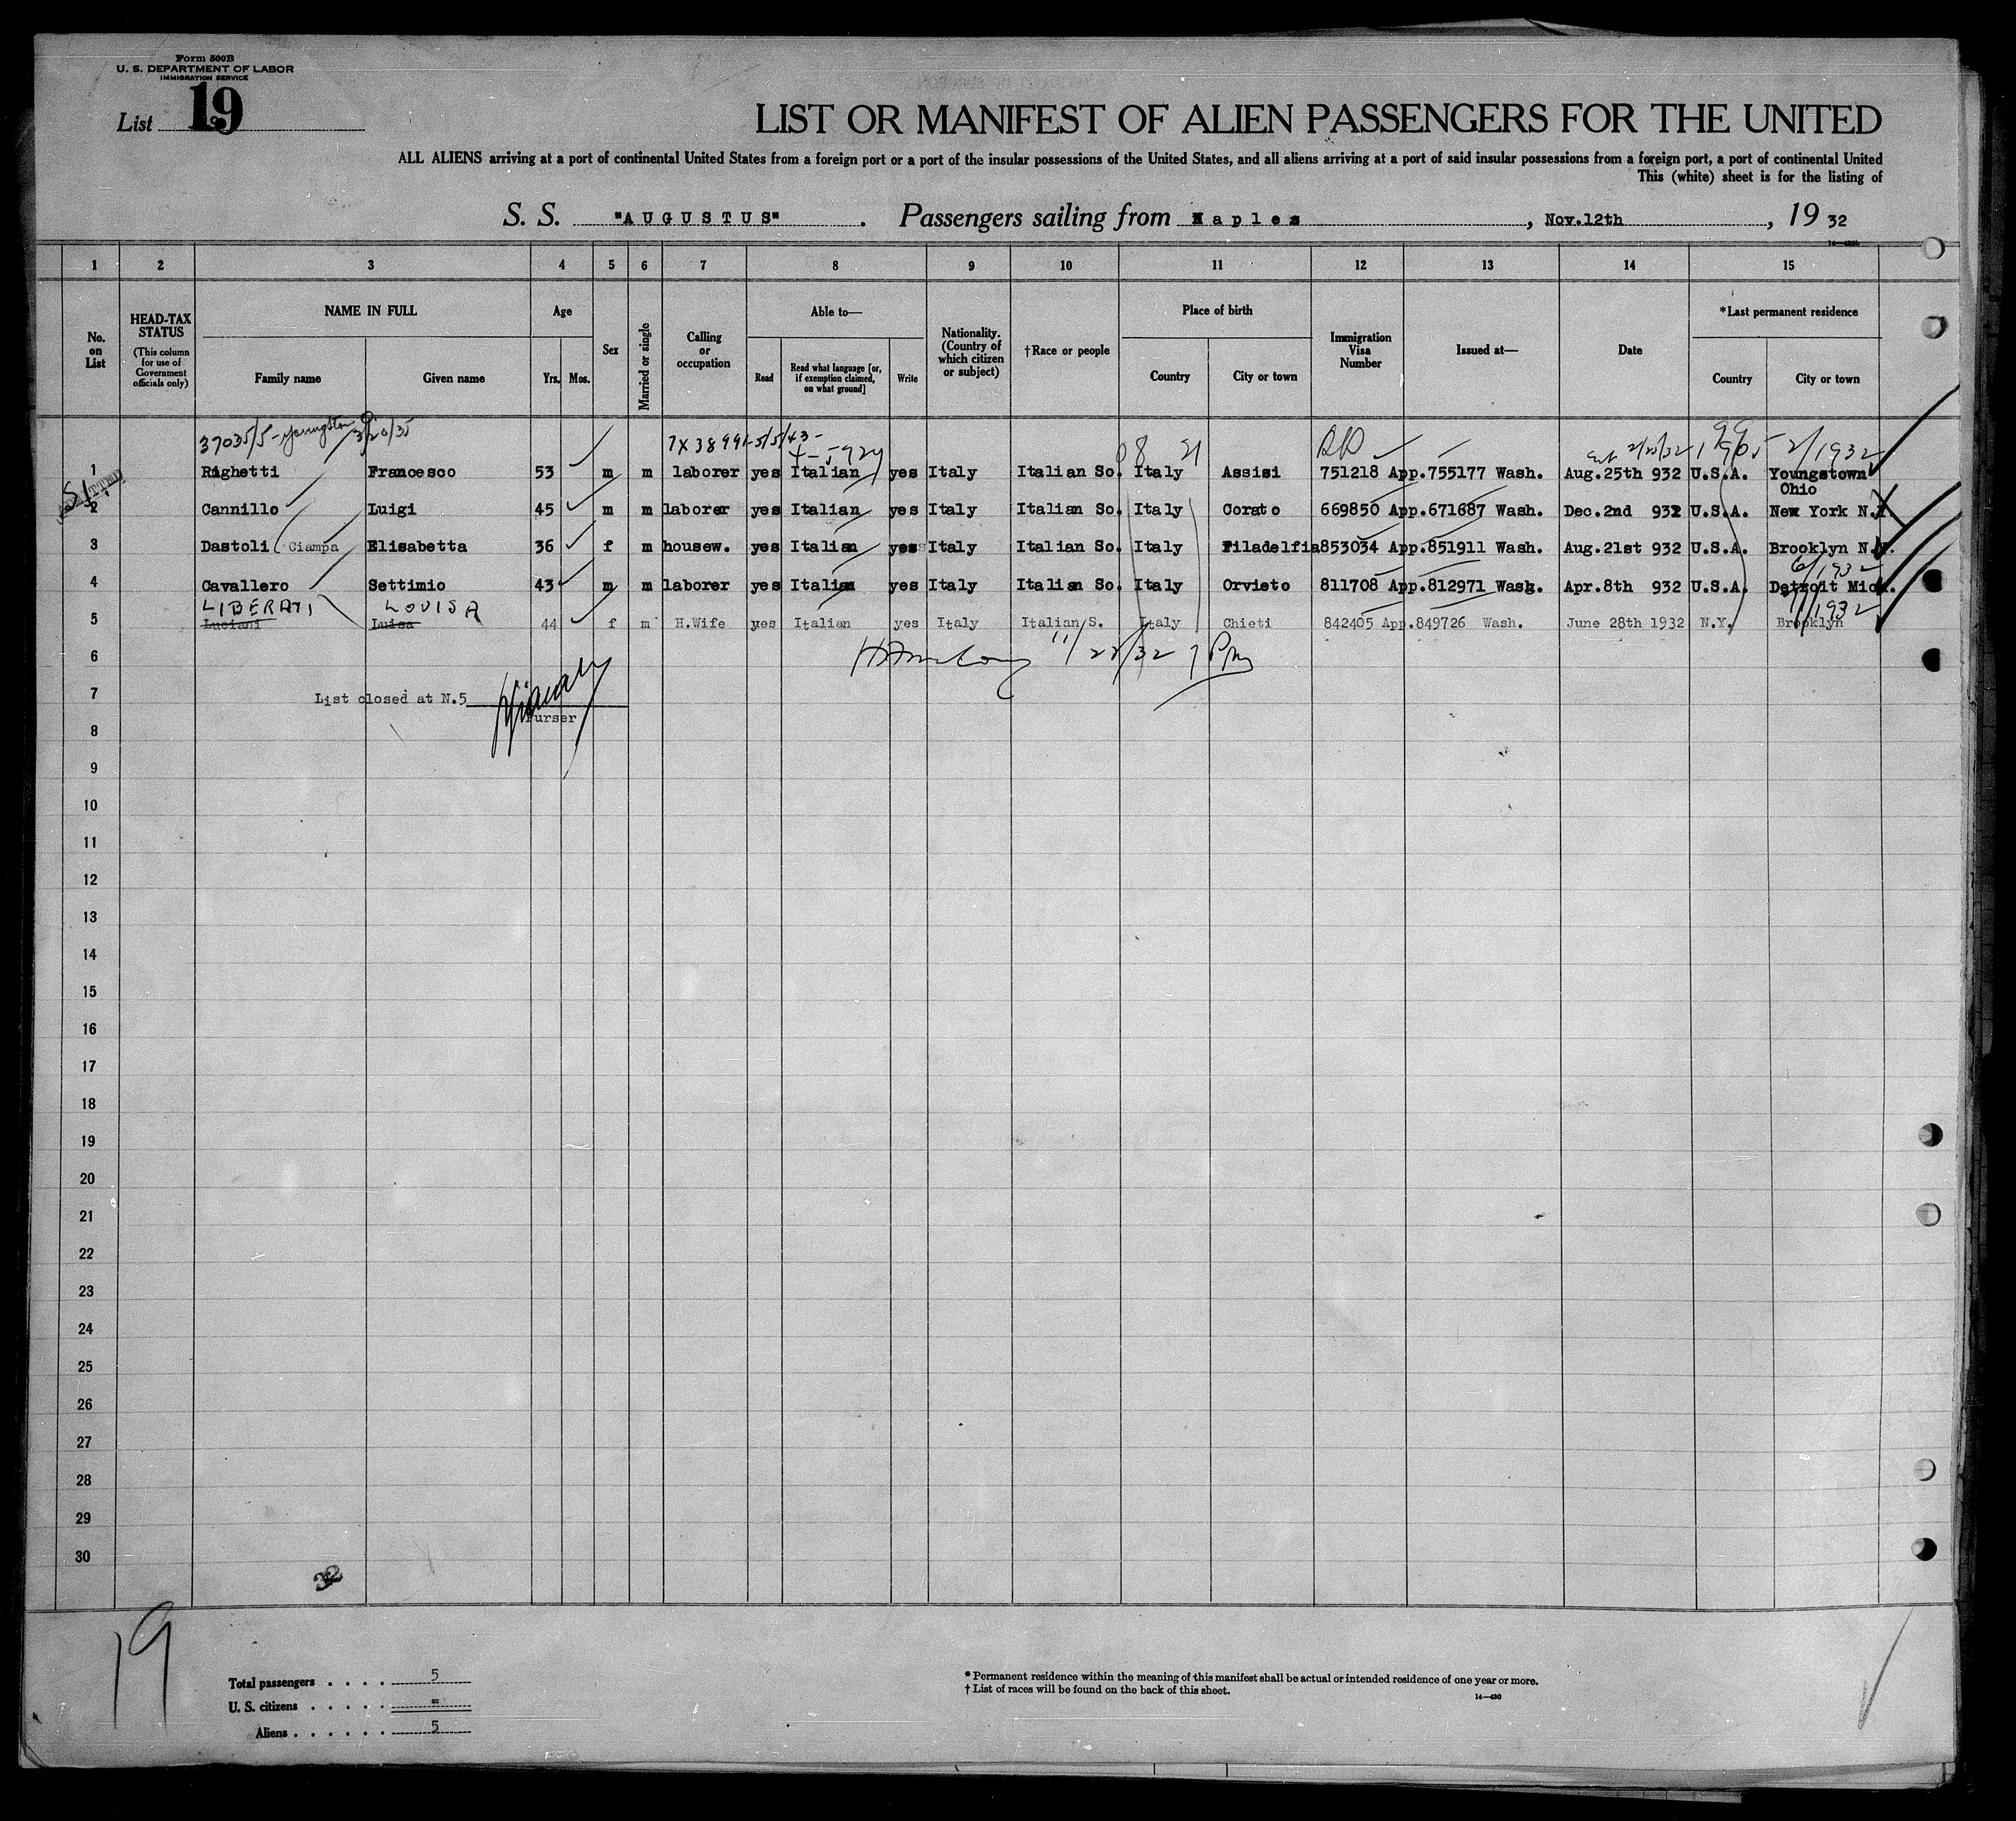 Form 500B
U. S. DEPARTMENT OF LABOR
IMMIGRATION SERVICE
List 19
LIST OR MANIFEST OF ALIEN PASSENGERS FOR THE UNITED
ALL ALIENS arriving at a port of continental United States from a foreign port or a port of the insular possessions of the United States, and all aliens arriving at a port of said insular possessions from a foreign port, a port of continental United
This (white) sheet is for the listing of
S. S. "AUGUSTUS". Passengers sailing from Naples, Nov.12th, 19 32
1 2 3 4 5 6 7 8 9 10 11 12 13 14 15
No. on List
HEAD-TAX STATUS (This column for use of Government officials only)
NAME IN FULL Family name Given name
Age Yrs. Mos.
Sex
Married or single
Calling or occupation
Able to— Read Read what language [or, if exemption claimed, on what ground] Write
Nationality. (Country of which citizen or subject)
†Race or people
Place of birth Country City or town
Immigration Visa Number
Issued at—
Date
*Last permanent residence Country City or town
37035/5 - Youngston O. 3/20/35 7X38991-5/5/43- 2/1932
1 Righetti Francesco 53 m m laborer yes Italian yes Italy Italian So. Italy Assisi 751218 App.755177 Wash. Aug.25th 932 U.S.A. Youngstown Ohio
2 Cannillo Luigi 45 m m laborer yes Italian yes Italy Italian So. Italy Corato 669850 App.671687 Wash. Dec.2nd 932 U.S.A. New York N.Y.
3 Dastoli (Ciampa Elisabetta 36 f m housew. yes Italian yes Italy Italian So. Italy Filadelfia 853034 App.851911 Wash. Aug.21st 932 U.S.A. Brooklyn N.Y.
6/1932
4 Cavallero Settimio 43 m m laborer yes Italian yes Italy Italian So. Italy Orvieto 811708 App.812971 Wash. Apr.8th 932 U.S.A. Detroit Mich.
LIBERATI LOUISA
5 Luciani Luisa 44 f m H.Wife yes Italian yes Italy Italian S. Italy Chieti 842405 App.849726 Wash. June 28th 1932 N.Y. Brooklyn
6
7 List closed at N.5
Purser
8
9
10
11
12
13
14
15
16
17
18
19
20
21
22
23
24
25
26
27
28
29
30
32
19
Total passengers . . . . 5
U. S. citizens . . . . . =
Aliens . . . . . . 5
* Permanent residence within the meaning of this manifest shall be actual or intended residence of one year or more.
† List of races will be found on the back of this sheet.
14—430